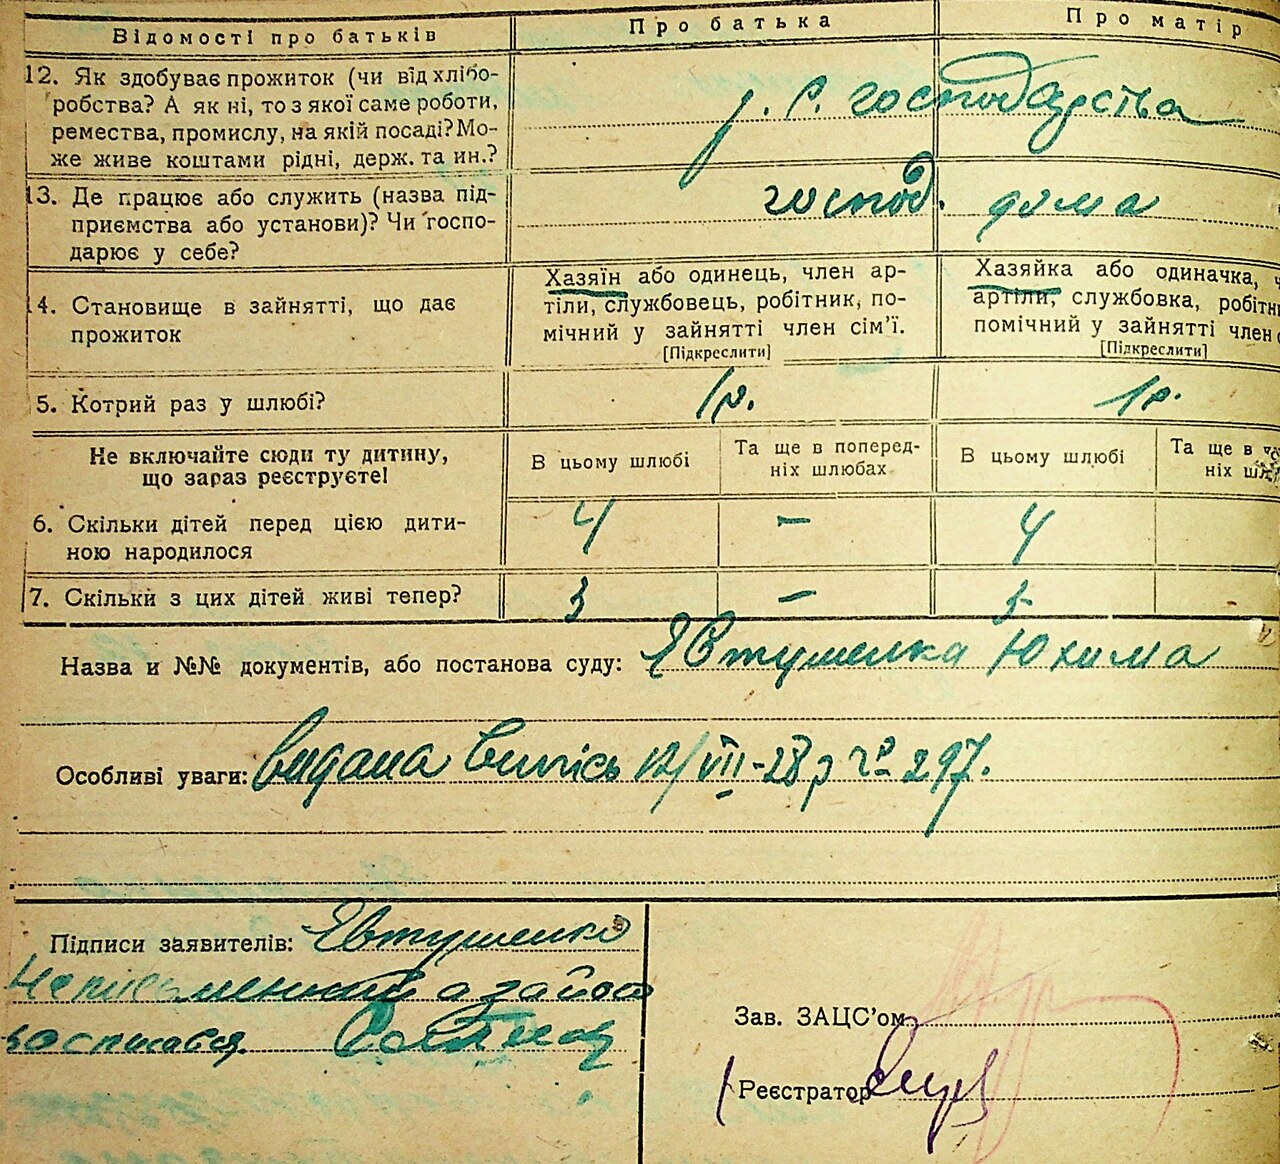 Відомості про батьків
Про батька
Про матір
12. Як здобуває прожиток (чи від хлібо-
робства? А як ні, то з якої саме роботи,
ремества, промислу, на якій посаді? Мо-
же живе коштами рідні, держ. та ин.?
з. с. господарства
13. Де працює або служить (назва під-
приємства або установи)? Чи госпо-
дарює у себе?
господ. дома
4. Становище в зайнятті, що дає
прожиток
Хазяїн або одинець, член ар-
тіли, службовець, робітник, по-
мічний у зайнятті член сім'ї.
[Підкреслити]
Хазяйка або одиначка, ч
артіли, службовка, робітн
помічний у зайнятті член с
[Підкреслити]
5. Котрий раз у шлюбі?
1р.
1р.
Не включайте сюди ту дитину,
що зараз реєструєте!
В цьому шлюбі
Та ще в поперед-
ніх шлюбах
В цьому шлюбі
Та ще в
ніх шл
6. Скільки дітей перед цією дити-
ною народилося
4
–
4
7. Скільки з цих дітей живі тепер?
3
–
Назва и №№ документів, або постанова суду: Явтушенка Юхима
Особливі уваги: видана випись 12/VIII-28 р № 297.
Підписи заявителів: Явтушенко
Неписьменний а за його
росписався.
Зав. ЗАЦС'ом
Реєстратор